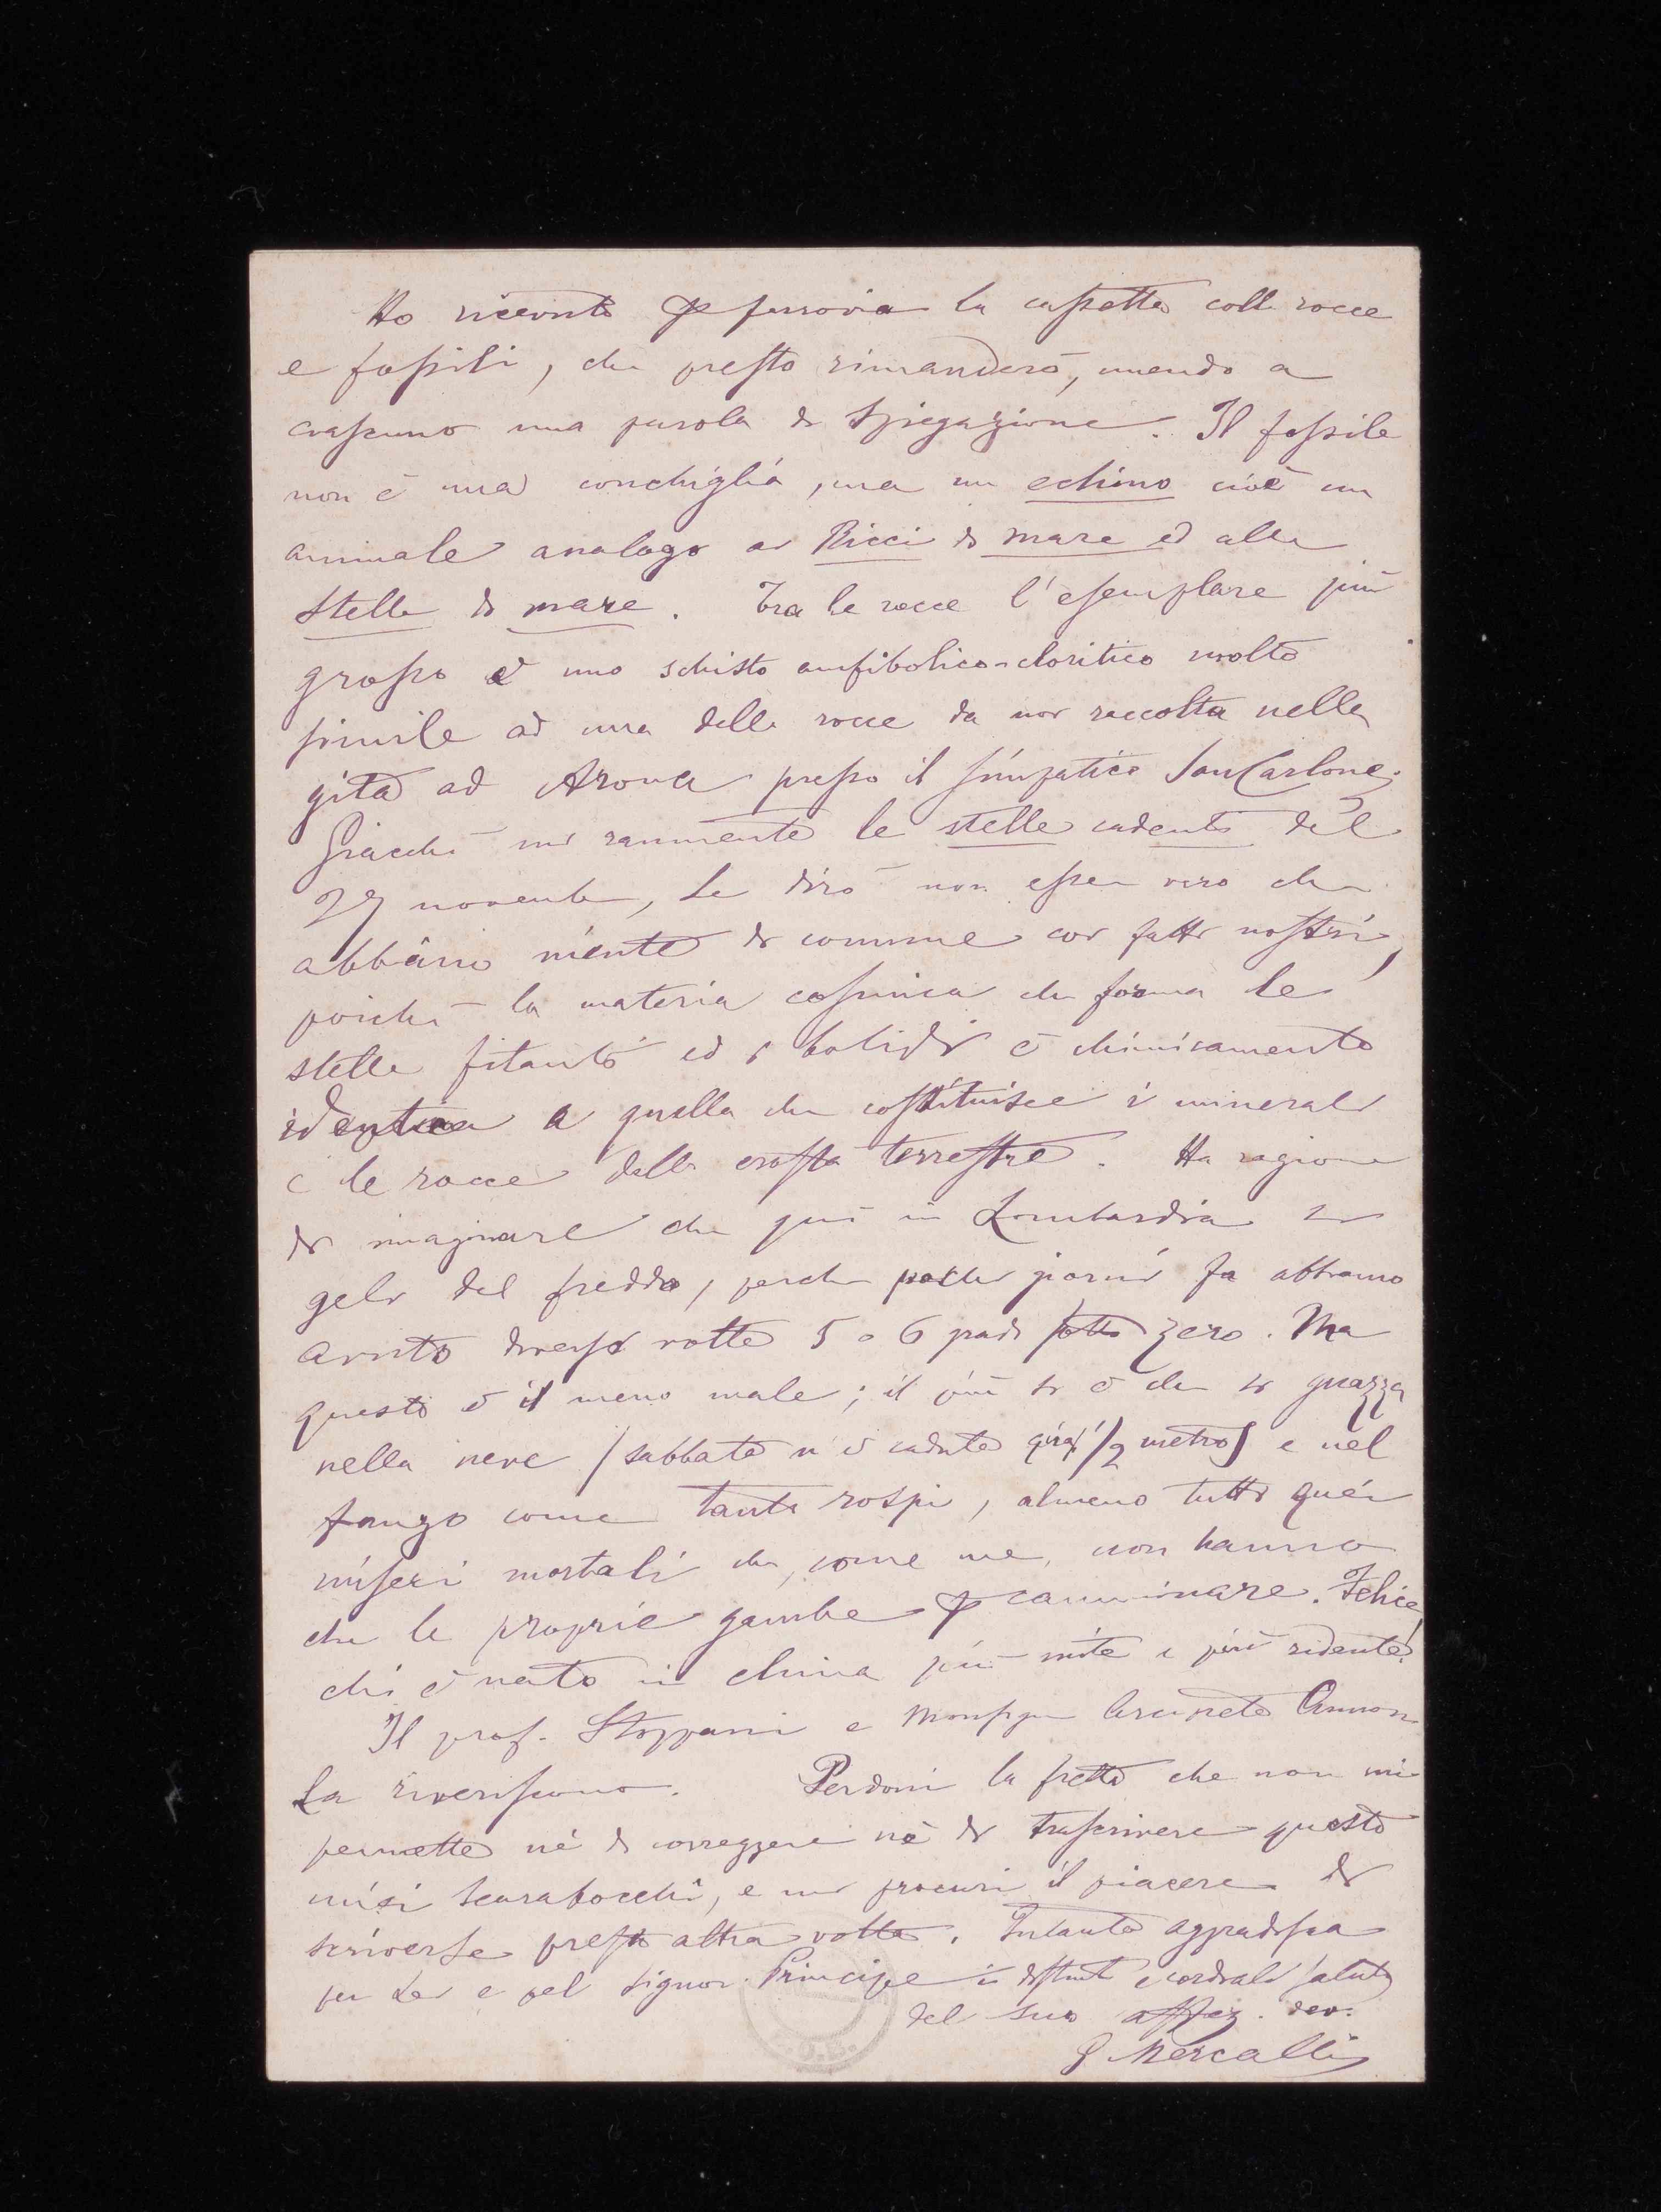 Ho ricevuto per ferrovia la cassetta colle rocce
e fossili, che presto rimanderò, unendo a
ciascuno una parola di spiegazione. Il fossile
non è una conchiglia, ma un echino cioè un
animale analogo ai Ricci di mare ed alle
stelle di mare. Tra le rocce l'esemplare più
grosso è uno schisto anfibolico-cloritico molto
simile ad una delle rocce da noi raccolta nella
gita ad Arona presso il simpatico San Carlone.
Giacchè mi rammenta le stelle cadenti del
27 novembre, Le dirò non esser vero che
abbiano niente di comune coi fatti nostri,
poichè la materia cosmica che forma le
stelle filanti ed i bolidi è chimicamente
identica a quella che costituisce i minerali
e le rocce della crosta terrestre. Ha ragione
di imaginare che qui in Lombardia si
geli dal freddo, perchè pochi giorni fa abbiamo
avuto diverse volte 5 o 6 gradi sotto zero. Ma
questo è il meno male; il più si è che si guazza
nella neve (sabbato n'è caduta 1/2 metro) e nel
fango come tanti rospi, almeno tutti quei
miseri mortali che, come me, non hanno
che le proprie gambe per camminare. Felice
chi è nato in clima più mite e più ridente!
Il prof. Stoppani e Monsign.
La riveriscono. Perdoni la fretta che non mi
permette nè di correggere nè di trascrivere questo
miei scarabocchi, e mi procuri il piacere di
scriverle presto altra volta. Intanto aggradisca
per Lei e pel Signor Principe i distinti e cordiali saluti
del suo affez. dev.
G Mercalli